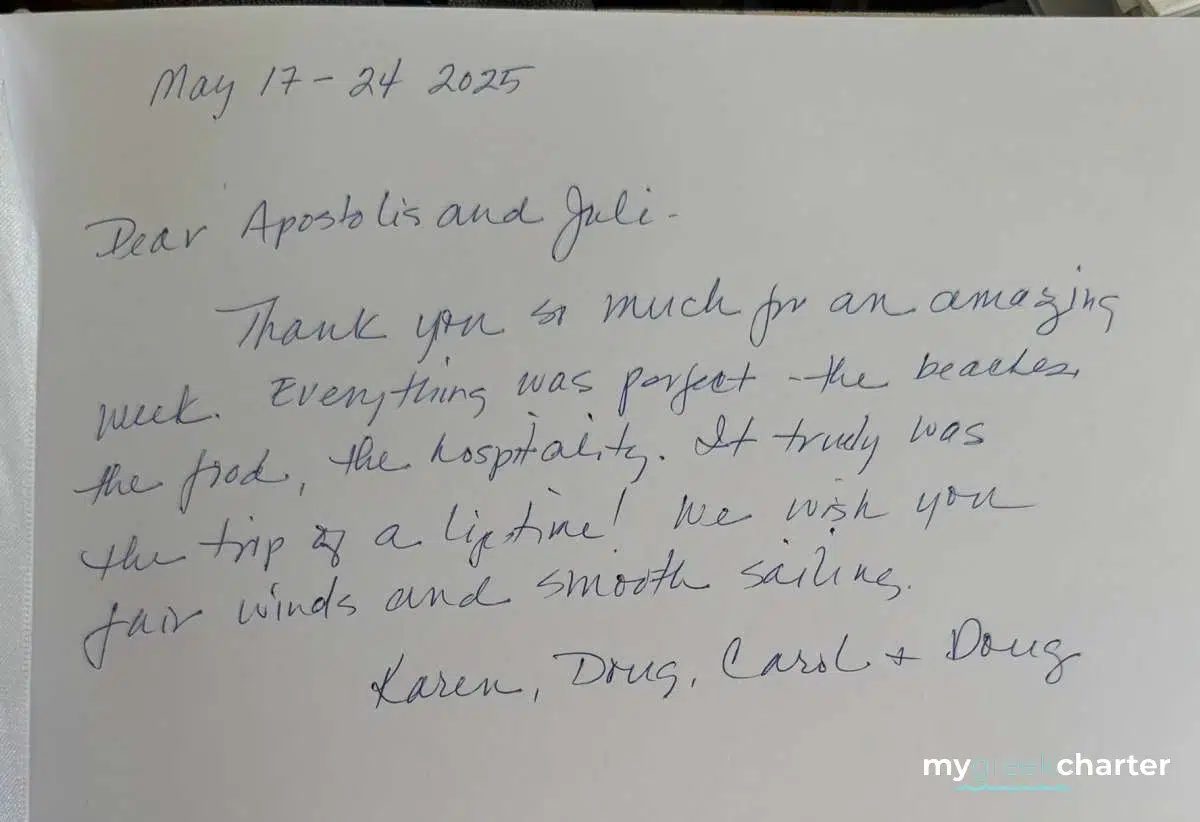 May 17 - 24 2025
Dear Apostolis and Juli -
Thank you so much for an amazing
week. Everything was perfect - the beaches,
the food, the hospitality. It truly was
the trip of a lifetime! We wish you
fair winds and smooth sailing.
Karen, Doug, Carol + Doug
mygreekcharter